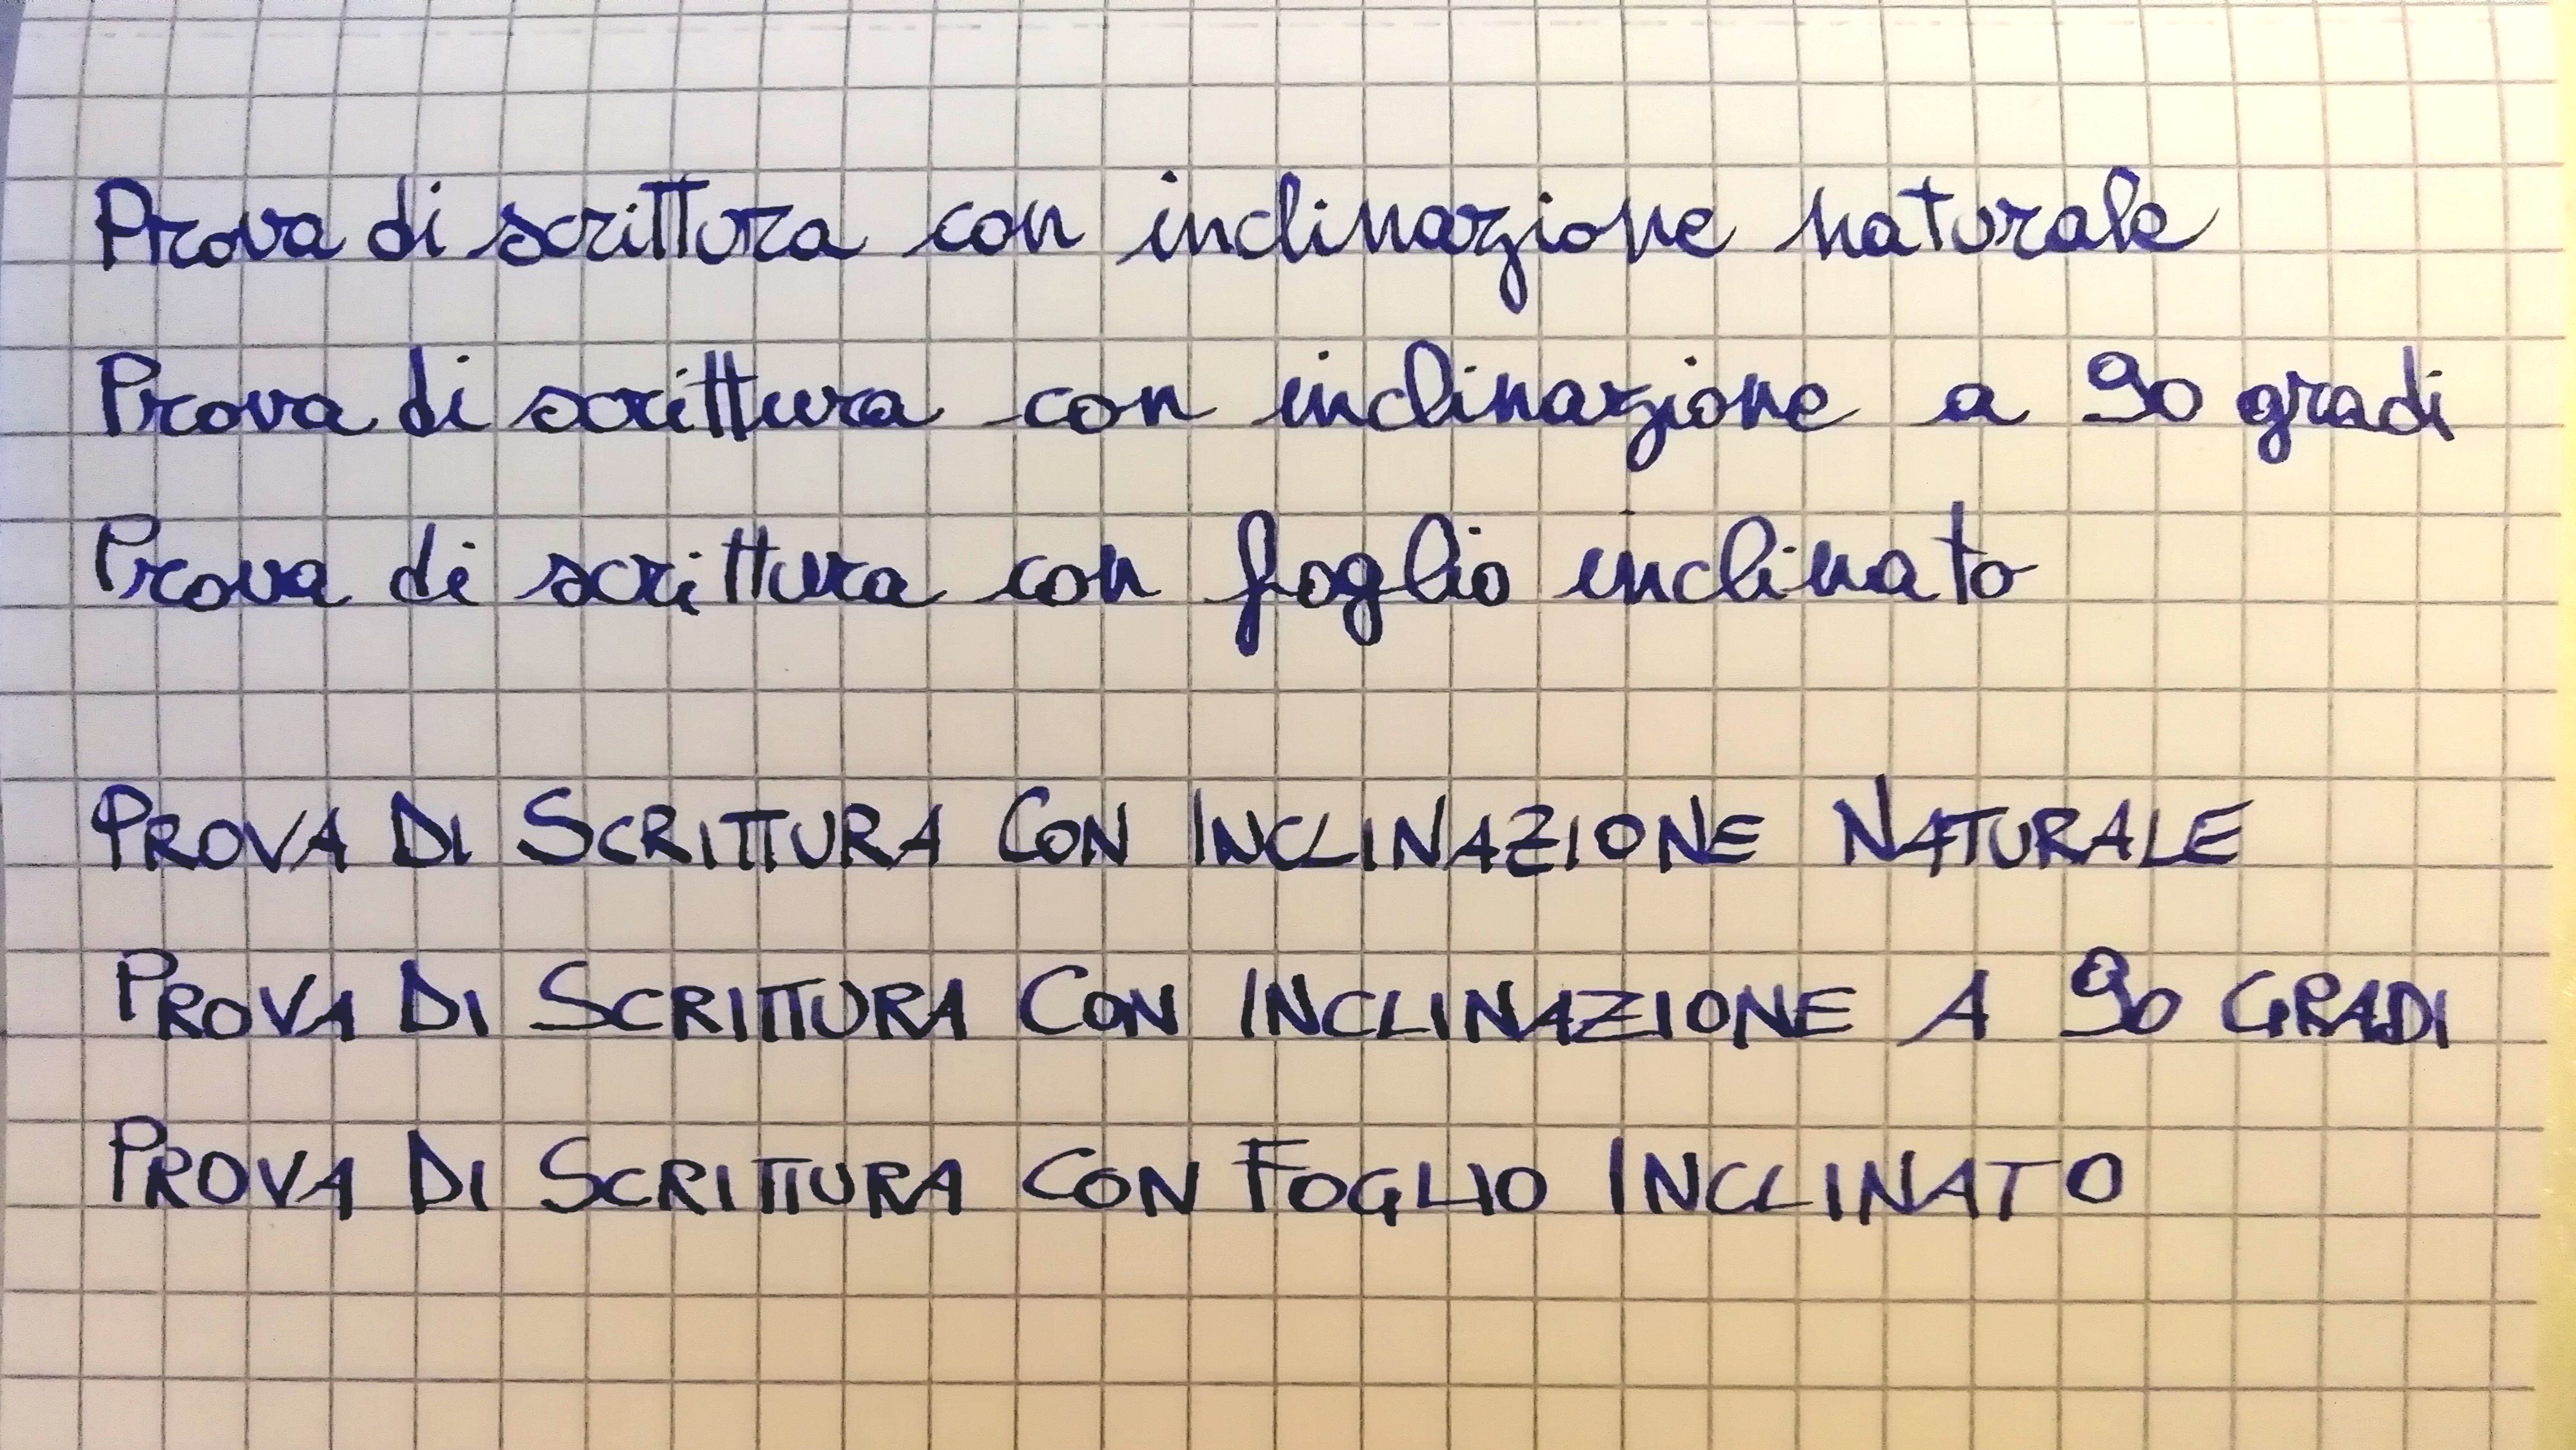 Prova di scrittura con inclinazione naturale
Prova di scrittura con inclinazione a 90 gradi
Prova di scrittura con foglio inclinato
PROVA DI SCRITTURA CON INCLINAZIONE NATURALE
PROVA DI SCRITTURA CON INCLINAZIONE A 90 GRADI
PROVA DI SCRITTURA CON FOGLIO INCLINATO